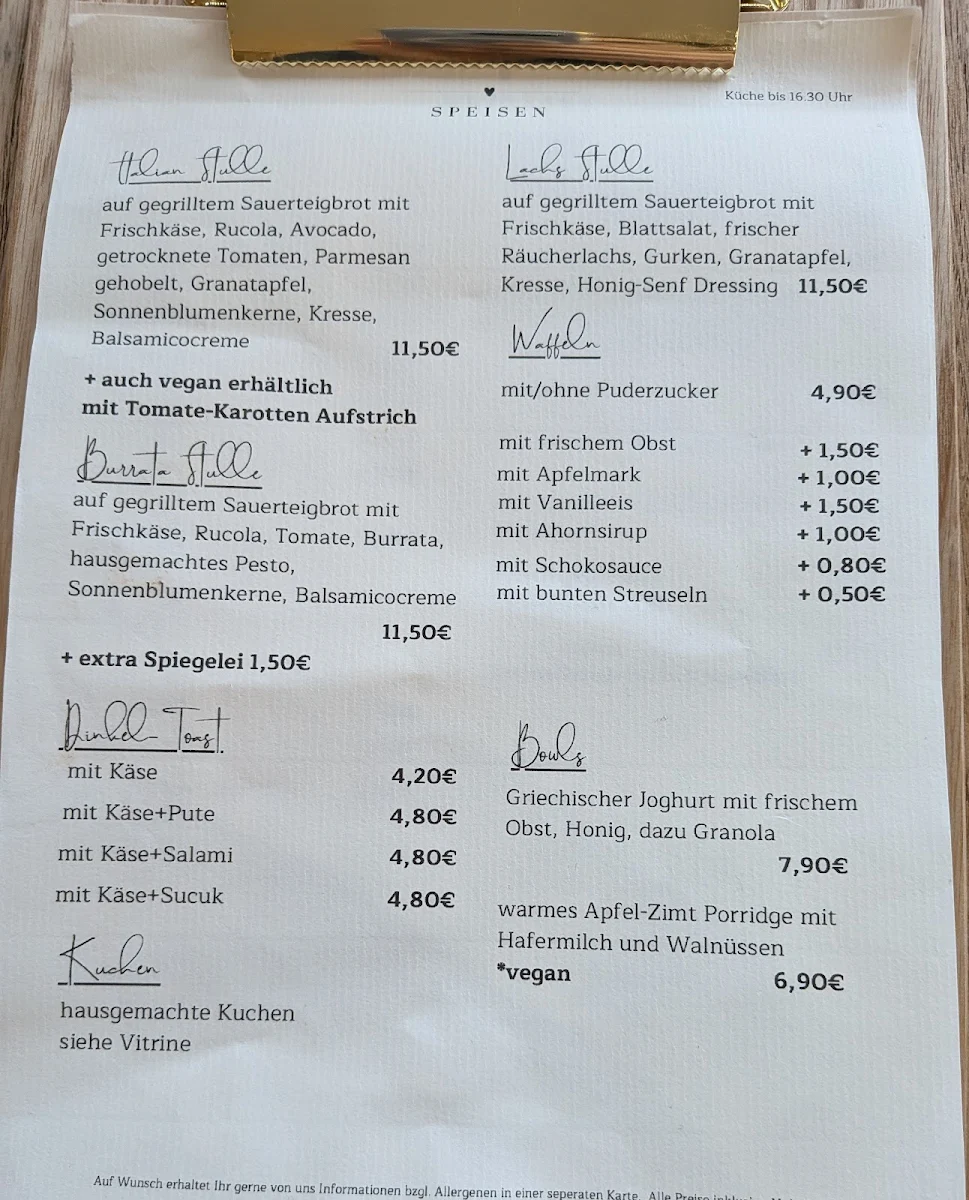 SPEISEN
Küche bis 16.30 Uhr
Italian Stulle
auf gegrilltem Sauerteigbrot mit
Frischkäse, Rucola, Avocado,
getrocknete Tomaten, Parmesan
gehobelt, Granatapfel,
Sonnenblumenkerne, Kresse,
Balsamicocreme 11,50€
+ auch vegan erhältlich
mit Tomate-Karotten Aufstrich
Burrata Stulle
auf gegrilltem Sauerteigbrot mit
Frischkäse, Rucola, Tomate, Burrata,
hausgemachtes Pesto,
Sonnenblumenkerne, Balsamicocreme
11,50€
+ extra Spiegelei 1,50€
Dinkel-Toast
mit Käse 4,20€
mit Käse+Pute 4,80€
mit Käse+Salami 4,80€
mit Käse+Sucuk 4,80€
Kuchen
hausgemachte Kuchen
siehe Vitrine
Lachs Stulle
auf gegrilltem Sauerteigbrot mit
Frischkäse, Blattsalat, frischer
Räucherlachs, Gurken, Granatapfel,
Kresse, Honig-Senf Dressing 11,50€
Waffeln
mit/ohne Puderzucker 4,90€
mit frischem Obst + 1,50€
mit Apfelmark + 1,00€
mit Vanilleeis + 1,50€
mit Ahornsirup + 1,00€
mit Schokosauce + 0,80€
mit bunten Streuseln + 0,50€
Bowls
Griechischer Joghurt mit frischem
Obst, Honig, dazu Granola
7,90€
warmes Apfel-Zimt Porridge mit
Hafermilch und Walnüssen
*vegan 6,90€
Auf Wunsch erhaltet Ihr gerne von uns Informationen bzgl. Allergenen in einer seperaten Karte. Alle Preise